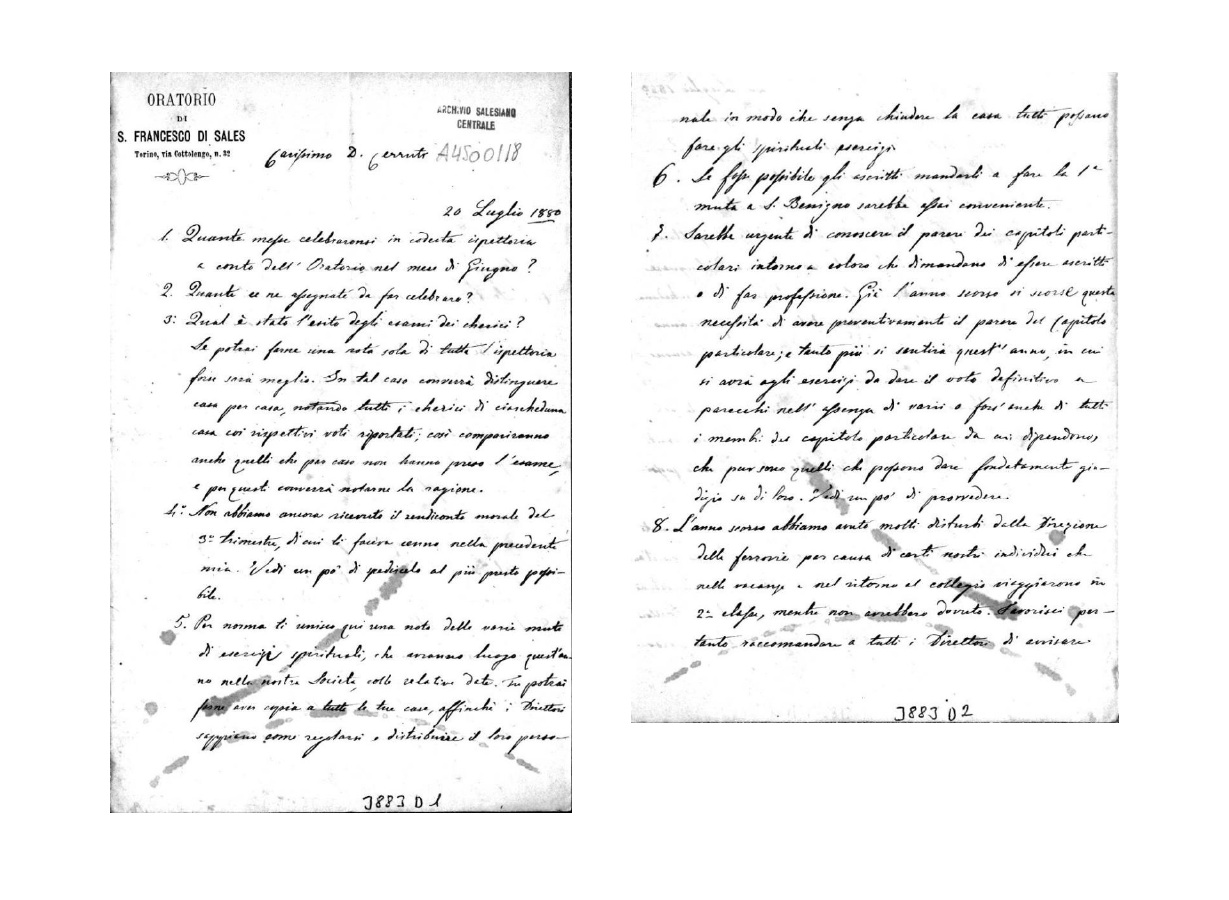 ORATORIO
DI
S. FRANCESCO DI SALES
Torino, via Cottolengo, n. 32
ARCHIVIO SALESIANO
CENTRALE
A4500118
Carissimo D. Cerruti
20 Luglio 1880
1. Quante messe celebraronsi in codesta ispettoria
a conto dell' Oratorio nel mese di Giugno?
2. Quante ce ne assegnate da far celebrare?
3: Qual è stato l'esito degli esami dei cherici?
Se potrai farne una nota sola di tutta l'ispettoria
forse sarà meglio. In tal caso converrà distinguere
casa per casa, notando tutti i cherici di ciascheduna
casa coi rispettivi voti riportati; così compariranno
anche quelli che per caso non hanno preso l'esame,
e per questi converrà notarne la ragione.
4.° Non abbiamo ancora ricevuto il rendiconto morale del
3° trimestre, di cui ti faceva cenno nella precedente
mia. Vedi un po' di spedircelo al più presto possi-
bile.
5. Per norma ti unisco qui una nota delle varie mute
di esercizi spirituali, che avranno luogo quest'an-
no nella nostra Società, colle relative date. Tu potrai
farne aver copia a tutte le tue case, affinchè i Direttori
sappiano come regolarsi e distribuire il loro perso-
J883 D 1
nale in modo che senza chiudere la casa tutti possano
fare gli spirituali esercizi.
6. Se fosse possibile gli ascritti mandarli a fare la 1a
muta a S. Benigno sarebbe assai conveniente.
7. Sarebbe urgente di conoscere il parere dei capitoli parti-
colari intorno a coloro che dimandano di essere ascritti
o di far professione. Già l'anno scorso si scorse questa
necessità di avere preventivamente il parere del Capitolo
particolare; e tanto più si sentirà quest'anno, in cui
si avrà agli esercizi da dare il voto definitivo a
parecchi nell'assenza di varii o fors'anche di tutti
i membri del capitolo particolare da cui dipendono,
che pur sono quelli che possono dare fondatamente giu-
dizio su di loro. Vedi un po' di provvedere.
8. L'anno scorso abbiamo avuto molti disturbi dalla Direzione
delle ferrovie per causa di certi nostri individui che
nelle vacanze e nel ritorno al collegio viaggiarono in
2a classe, mentre non avrebbero dovuto. Favorisci per-
tanto raccomandare a tutti i Direttori di avvisare
J883 D2